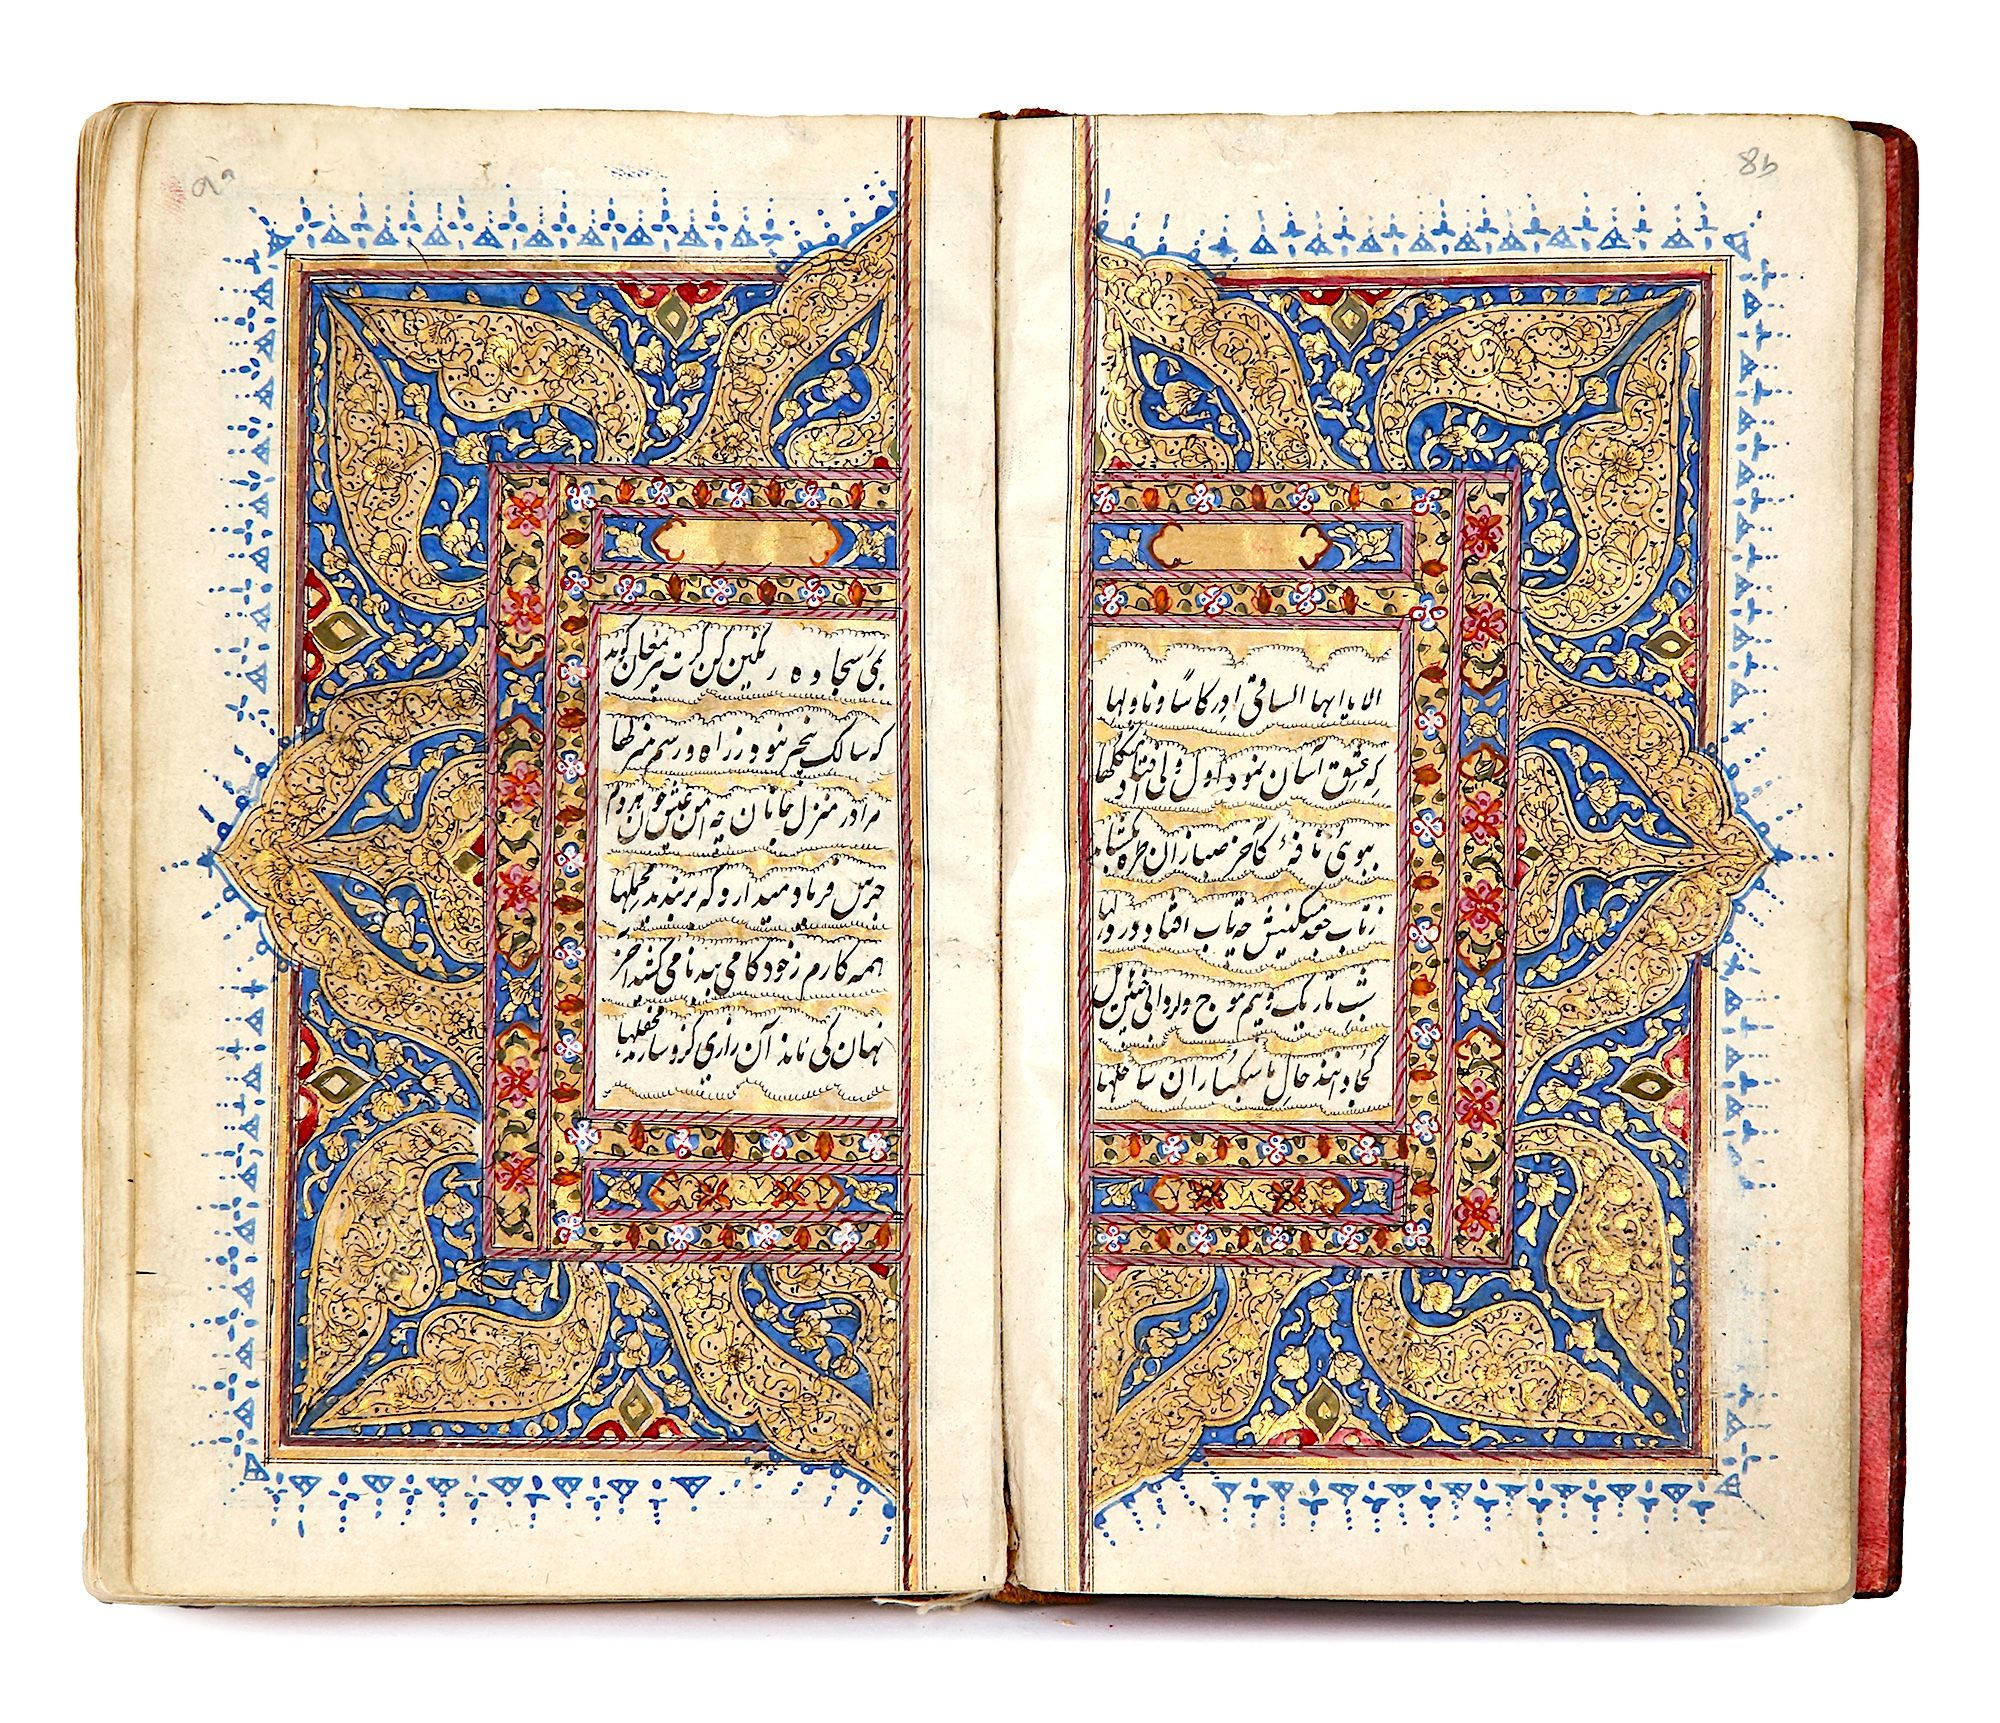 الا یا ایها الساقی ادر کاسًا و ناولها
که عشق آسان نمود اول ولی افتاد مشکلها
ببوی نافهٔ کآخر صبا زان طره بگشاید
ز تاب جعد مشکینش چه تاب افتاد در دلها
شب تاریک و بیم موج و گردابی چنین هایل
کجا دانند حال ما سبکباران ساحلها
بمی سجاده رنگین کن گرت پیر مغان گوید
که سالک بیخبر نبود ز راه و رسم منزلها
مرا در منزل جانان چه امن عیش چون هر دم
جرس فریاد میدارد که بربندید محملها
همه کارم ز خود کامی ببدنامی کشید آخر
نهان کی ماند آن رازی کزو سازند محفلها